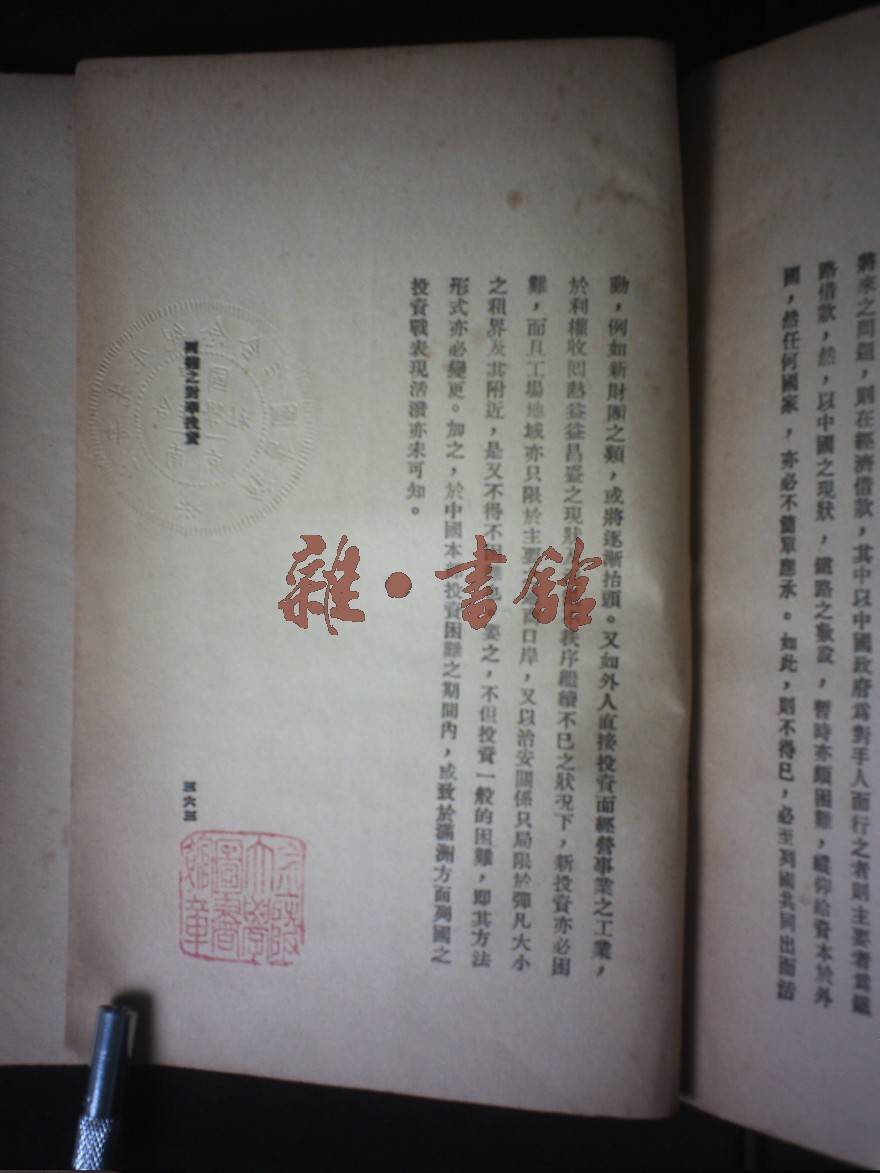 將來之問題，則在經濟借款，其中以中國政府爲對手人而行之者則主要者當鐵
路借款，然，以中國之現狀，鐵路之敷設，暫時亦頗困難，縱仰給資本於外
國，然任何國家，亦必不簡單應承。如此，則不得已，必至列國共同出而活
動，例如新財團之類，或將逐漸抬頭。又如外人直接投資而經營事業之工業，
於利權收回熱益益昌盛之現狀 秩序繼續不已之狀況下，新投資亦必困
難，而且工場地域亦只限於主要 商口岸，又以治安關係只局限於彈凡大小
之租界及其附近，是又不得不 要之，不但投資一般的困難，即其方法
形式亦必變更。加之，於中國本部投資困難之期間內，或致於滿洲方面列國之
投資戰表現活潑亦未可知。
列國之對華投資
三六三
金陵大學圖書館章
雜·書館